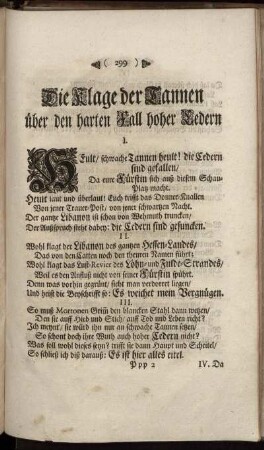 ( 299 )
Die Klage der Tannen
über den harten Fall hoher Cedern
I.
HEult/ schwache Tannen heult! die Cedern
sind gefallen/
Da eure Fürstin sich auß diesem Schau-
Platz macht.
Heult laut und überlaut! Euch trifft das Donner-Knallen
Von jener Trauer-Post/ von jener schwartzen Nacht.
Der gantze Libanon ist schon von Wehmuth truncken/
Der Außspruch stehet dabey: die Cedern sind gesuncken.
II.
Wohl klagt der Libanon des gantzen Hessen-Landes/
Das von den Catten noch den theuren Namen führt;
Wohl klagt das Lust-Revier des Löhn- und Fulde-Strandes/
Weil es den Anstoß nicht von seiner Fürstin spührt.
Denn was vorhin gegrünt/ sieht man verdorret liegen/
Und heist die Beyschrifft so: Es weichet mein Vergnügen.
III.
So muß Martonen Grimm den blancken Stahl dann wetzen/
Den sie auff Hieb und Stich/ auff Tod und Leben richt?
Ich meynt/ sie würd ihn nur an schwache Tannen setzen/
So schont doch ihre Wuth auch hoher Cedern nicht?
Was soll wohl dieses seyn? trifft sie dann Haupt und Scheitel/
So schließ ich diß darauß: Es ist hier alles eitel.
Ppp 2
IV. Da